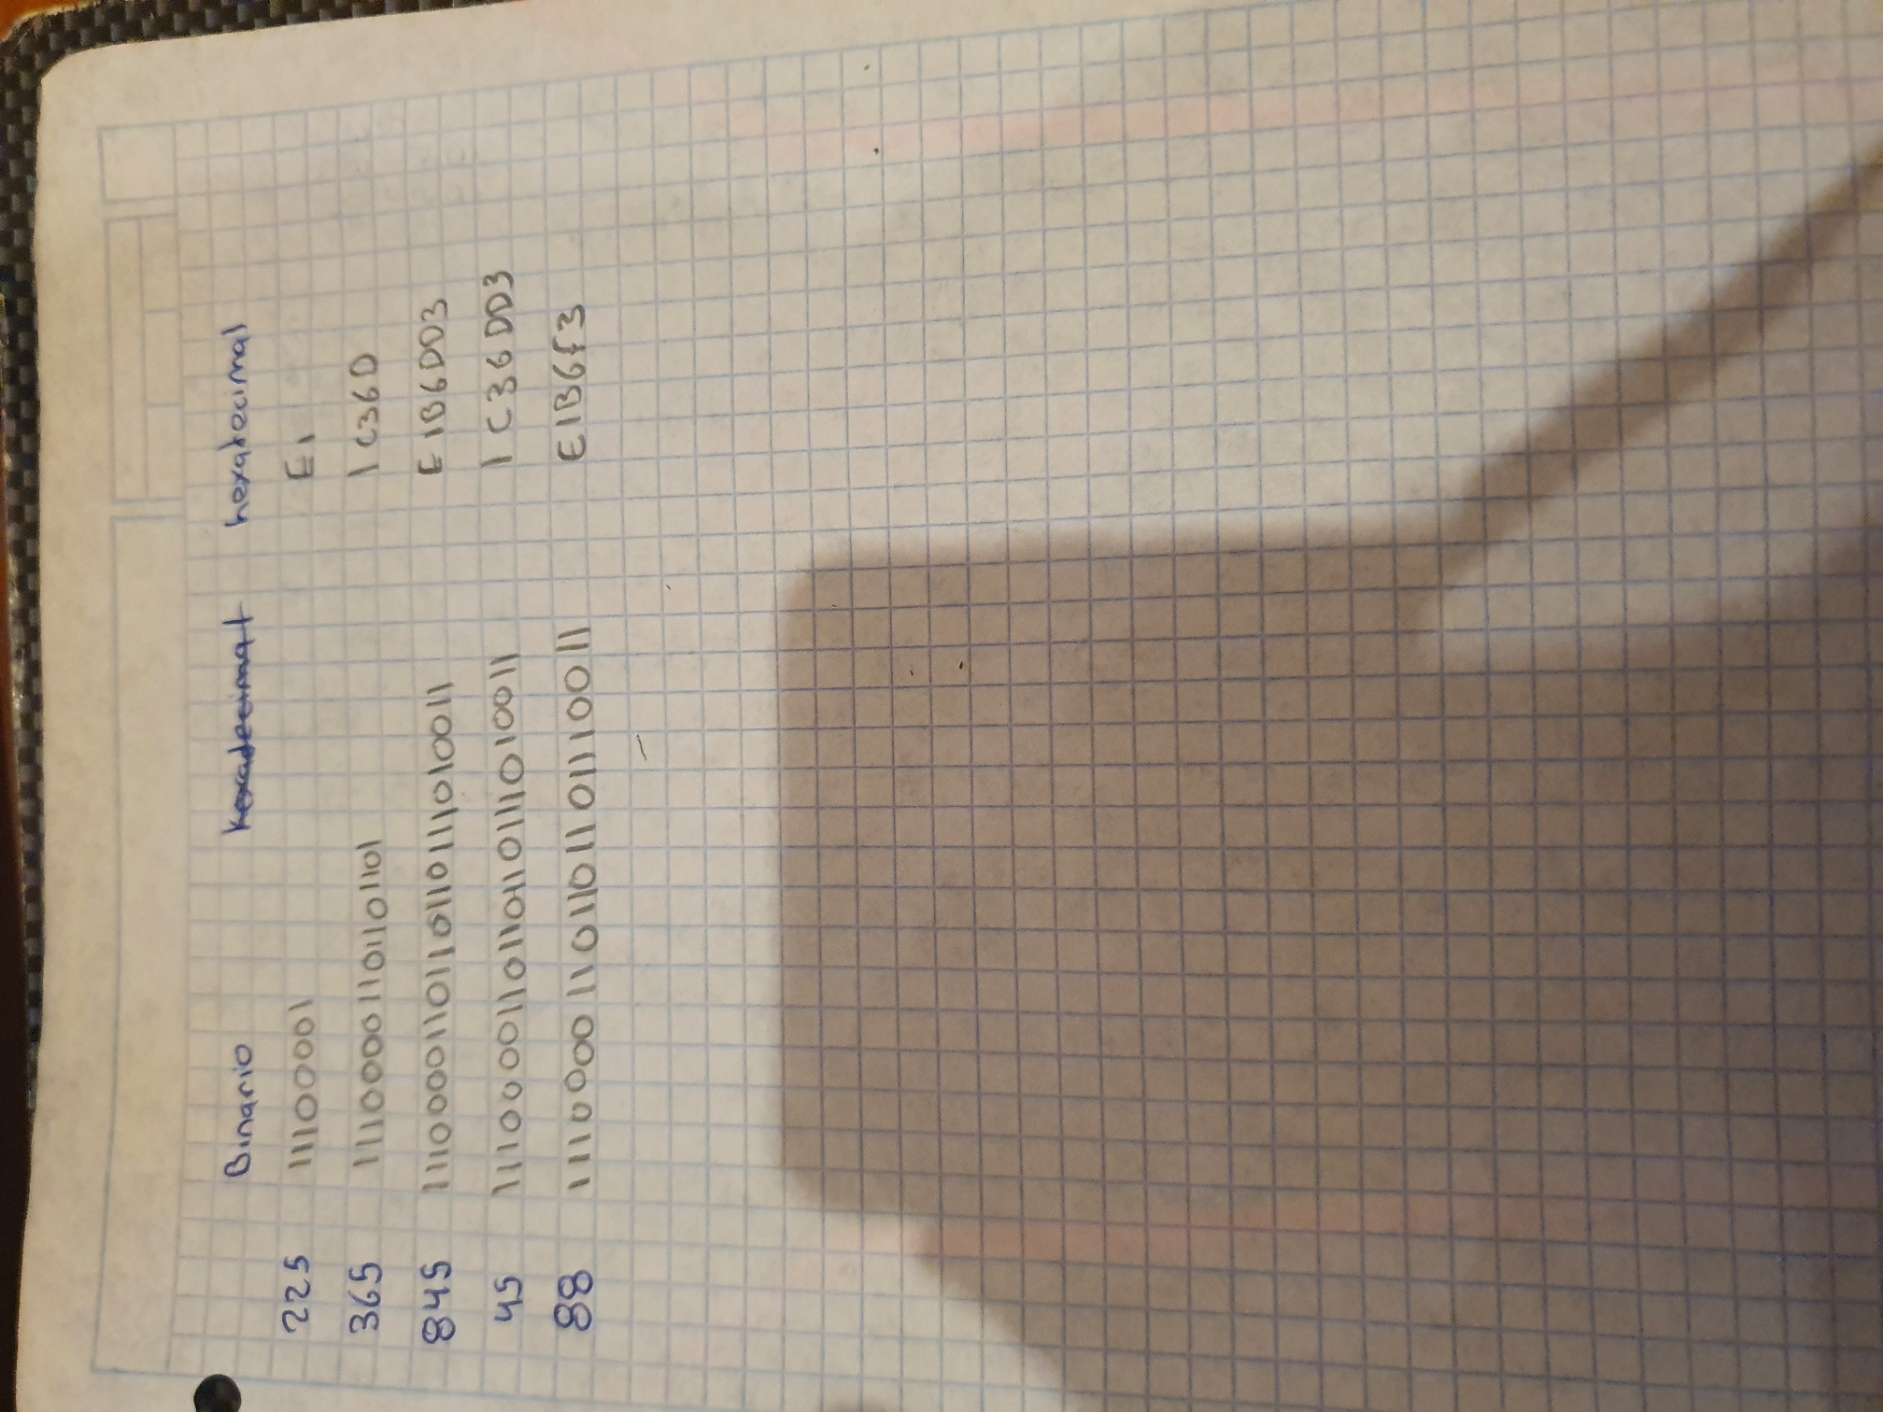 Binario hexadecimal hexatecimal
225 11100001 E1
365 11100001101101101 1C36D
845 1110000110110110111010011 E1B6DD3
45 1110000110110110111010011 1C36DD3
88 11100001101101101110011 E1B6F3